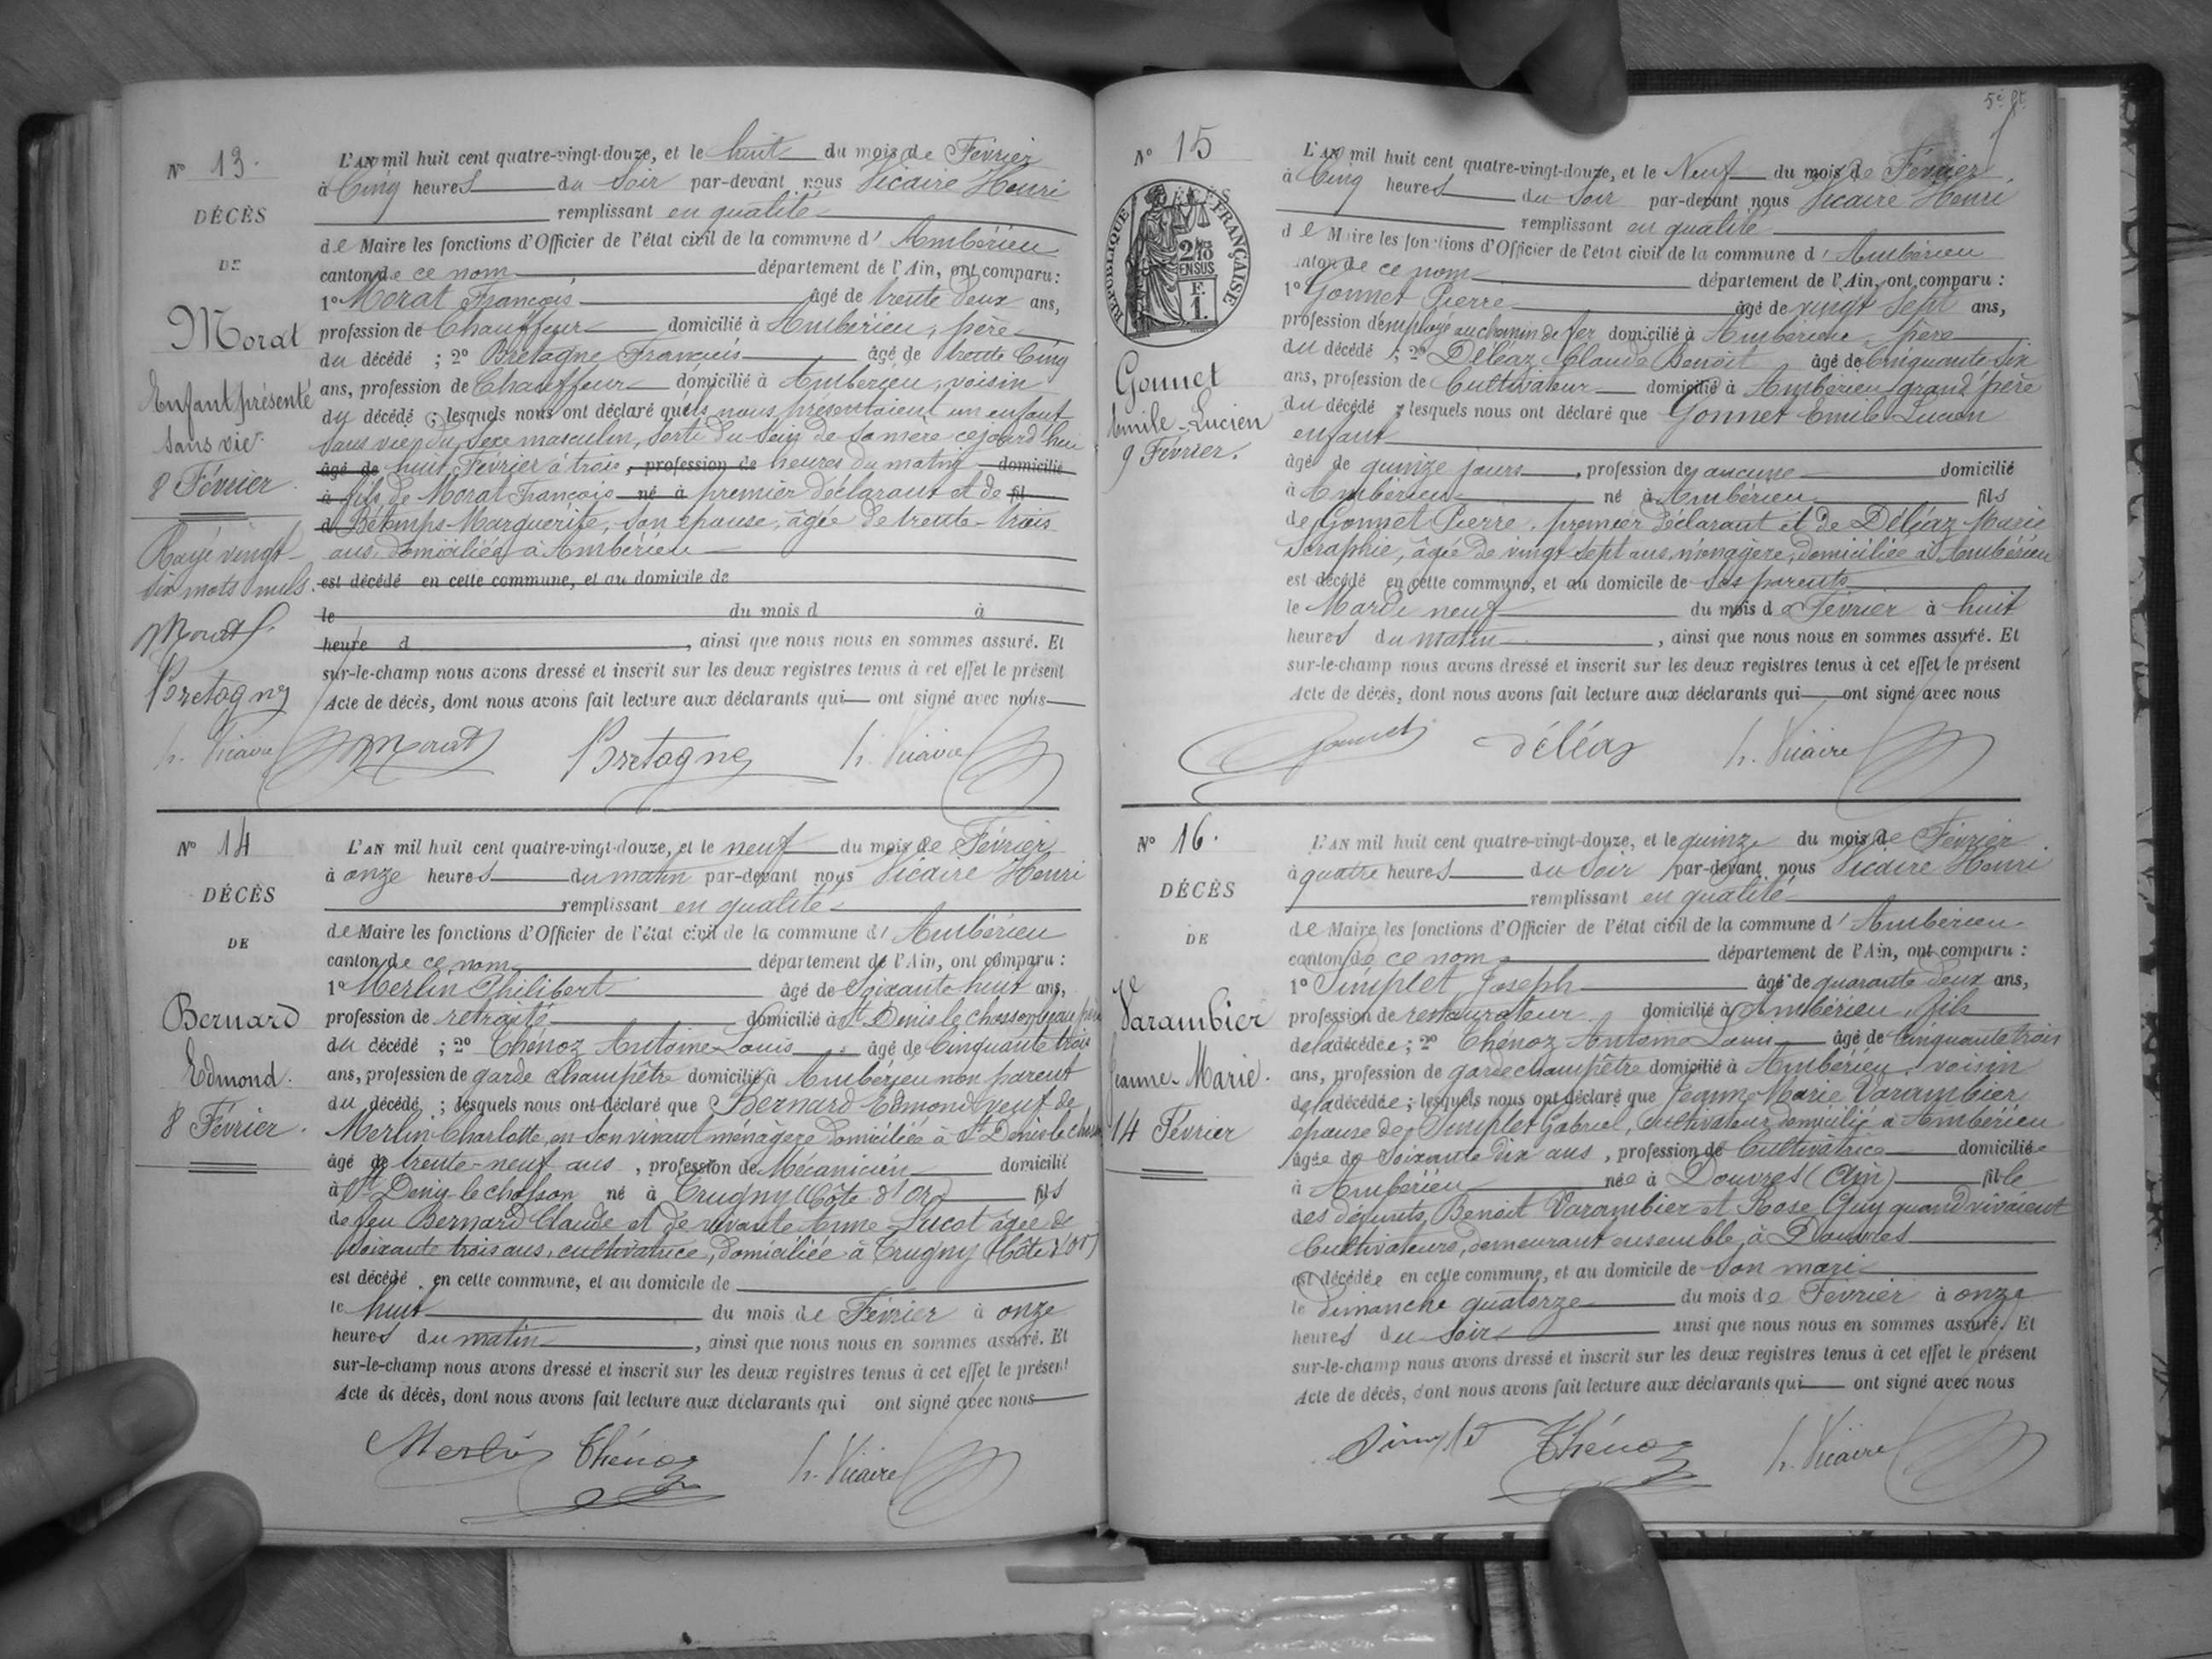 N° 13.
DÉCÈS
DE
Morat
Enfant présenté
sans vie
8 Février
Rayé vingt
six mots nuls.
Morat f.
Bretagne
h. Vicaire
L'AN mil huit cent quatre-vingt-douze, et le huit du mois de Février
à Cinq heures du soir par-devant nous Vicaire Henri
remplissant en qualité
de Maire les fonctions d'Officier de l'état civil de la commune d' Ambérieu
canton de ce nom département de l'Ain, ont comparu :
1° Morat François âgé de trente deux ans,
profession de Chauffeur domicilié à Ambérieu, père
du décédé ; 2° Bretagne François âgé de trente Cinq
ans, profession de Chauffeur domicilié à Ambérieu, voisin
du décédé ; lesquels nous ont déclaré qu'ils nous présentaient un enfant
sans vie, du sexe masculin, sorti du sein de sa mère cejourd'hui
âgé de huit Février à trois, profession de heures du matin, domicilié
à fils de Morat François né à premier déclarant et de fil
d Bétemps Marguerite, son épouse, âgée de trente-trois
ans, domiciliée à Ambérieu
est décédé en cette commune, et au domicile de
le du mois d à
heure d , ainsi que nous nous en sommes assuré. Et
sur-le-champ nous avons dressé et inscrit sur les deux registres tenus à cet effet le présent
Acte de décès, dont nous avons fait lecture aux déclarants qui ont signé avec nous
Morat Bretagne h. Vicaire
N° 14
DÉCÈS
DE
Bernard
Edmond.
8 Février.
L'AN mil huit cent quatre-vingt-douze, et le neuf du mois de Février
à onze heures du matin par-devant nous Vicaire Henri
remplissant en qualité
de Maire les fonctions d'Officier de l'état civil de la commune d' Ambérieu
canton de ce nom département de l'Ain, ont comparu :
1° Merlin Philibert âgé de Soixante huit ans,
profession de retraité domicilié à St Denis le chosson beau père
du décédé ; 2° Thénoz Antoine Louis âgé de Cinquante trois
ans, profession de garde champêtre domicilié à Ambérieu non parent
du décédé ; lesquels nous ont déclaré que Bernard Edmond veuf de
Merlin Charlotte, en son vivant ménagère domiciliée à St Denis le chosson
âgé de trente-neuf ans , profession de Mécanicien domicilié
à St Denis-le-chosson né à Trugny (Côte d'Or) fils
de feu Bernard Claude et de vivante Anne Lucot âgée de
soixante trois ans, cultivatrice, domiciliée à Trugny (Côte d'Or)
est décédé en cette commune, et au domicile de
le huit du mois de Février à onze
heures du matin , ainsi que nous nous en sommes assuré. Et
sur-le-champ nous avons dressé et inscrit sur les deux registres tenus à cet effet le présent
Acte de décès, dont nous avons fait lecture aux déclarants qui ont signé avec nous
Merlin Thénoz h. Vicaire
5e ft
N° 15
DÉCÈS
RÉPUBLIQUE FRANÇAISE
2/10
EN SUS
F.
1.
Gonnet
Emile-Lucien
9 Février.
L'AN mil huit cent quatre-vingt-douze, et le Neuf du mois de Février
à Cinq heures du soir par-devant nous Vicaire Henri
remplissant en qualité
de Maire les fonctions d'Officier de l'état civil de la commune d' Ambérieu
canton de ce nom département de l'Ain, ont comparu :
1° Gonnet Pierre âgé de vingt sept ans,
profession d'employé au chemin de fer domicilié à Ambérieu père
du décédé ; 2° Déléaz Claude Benoît âgé de Cinquante six
ans, profession de Cultivateur domicilié à Ambérieu grand père
du décédé ; lesquels nous ont déclaré que Gonnet Emile Lucien
enfant
âgé de quinze jours , profession de aucune domicilié
à Ambérieu né à Ambérieu fils
de Gonnet Pierre, premier déclarant et de Déléaz Marie
Séraphie, âgée de vingt sept ans, ménagère, domiciliée à Ambérieu
est décédé en cette commune, et au domicile de ses parents
le Mardi neuf du mois de Février à huit
heures du matin , ainsi que nous nous en sommes assuré. Et
sur-le-champ nous avons dressé et inscrit sur les deux registres tenus à cet effet le présent
Acte de décès, dont nous avons fait lecture aux déclarants qui ont signé avec nous
Gonnet déléaz h. Vicaire
N° 16.
DÉCÈS
DE
Varambier
Jeanne-Marie.
14 Février
L'AN mil huit cent quatre-vingt-douze, et le quinze du mois de Février
à quatre heures du soir par-devant nous Vicaire Henri
remplissant en qualité
de Maire les fonctions d'Officier de l'état civil de la commune d' Ambérieu
canton de ce nom département de l'Ain, ont comparu :
1° Simplet Joseph âgé de quarante deux ans,
profession de restaurateur domicilié à Ambérieu, fils
de la décédée ; 2° Thénoz Antoine Louis âgé de Cinquante trois
ans, profession de garde champêtre domicilié à Ambérieu, voisin
de la décédée ; lesquels nous ont déclaré que Jeanne Marie Varambier
épouse de Simplet Gabriel, cultivateur, domicilié à Ambérieu
âgée de soixante dix ans , profession de Cultivatrice domiciliée
à Ambérieu née à Douvres (Ain) fille
des défunts, Benoit Varambier et Rose Guy quand vivaient
Cultivateurs, demeurant ensemble à Douvres
est décédée en cette commune, et au domicile de son mari
le dimanche quatorze du mois de Février à onze
heures du soir ainsi que nous nous en sommes assuré. Et
sur-le-champ nous avons dressé et inscrit sur les deux registres tenus à cet effet le présent
Acte de décès, dont nous avons fait lecture aux déclarants qui ont signé avec nous
Simplet Thénoz h. Vicaire